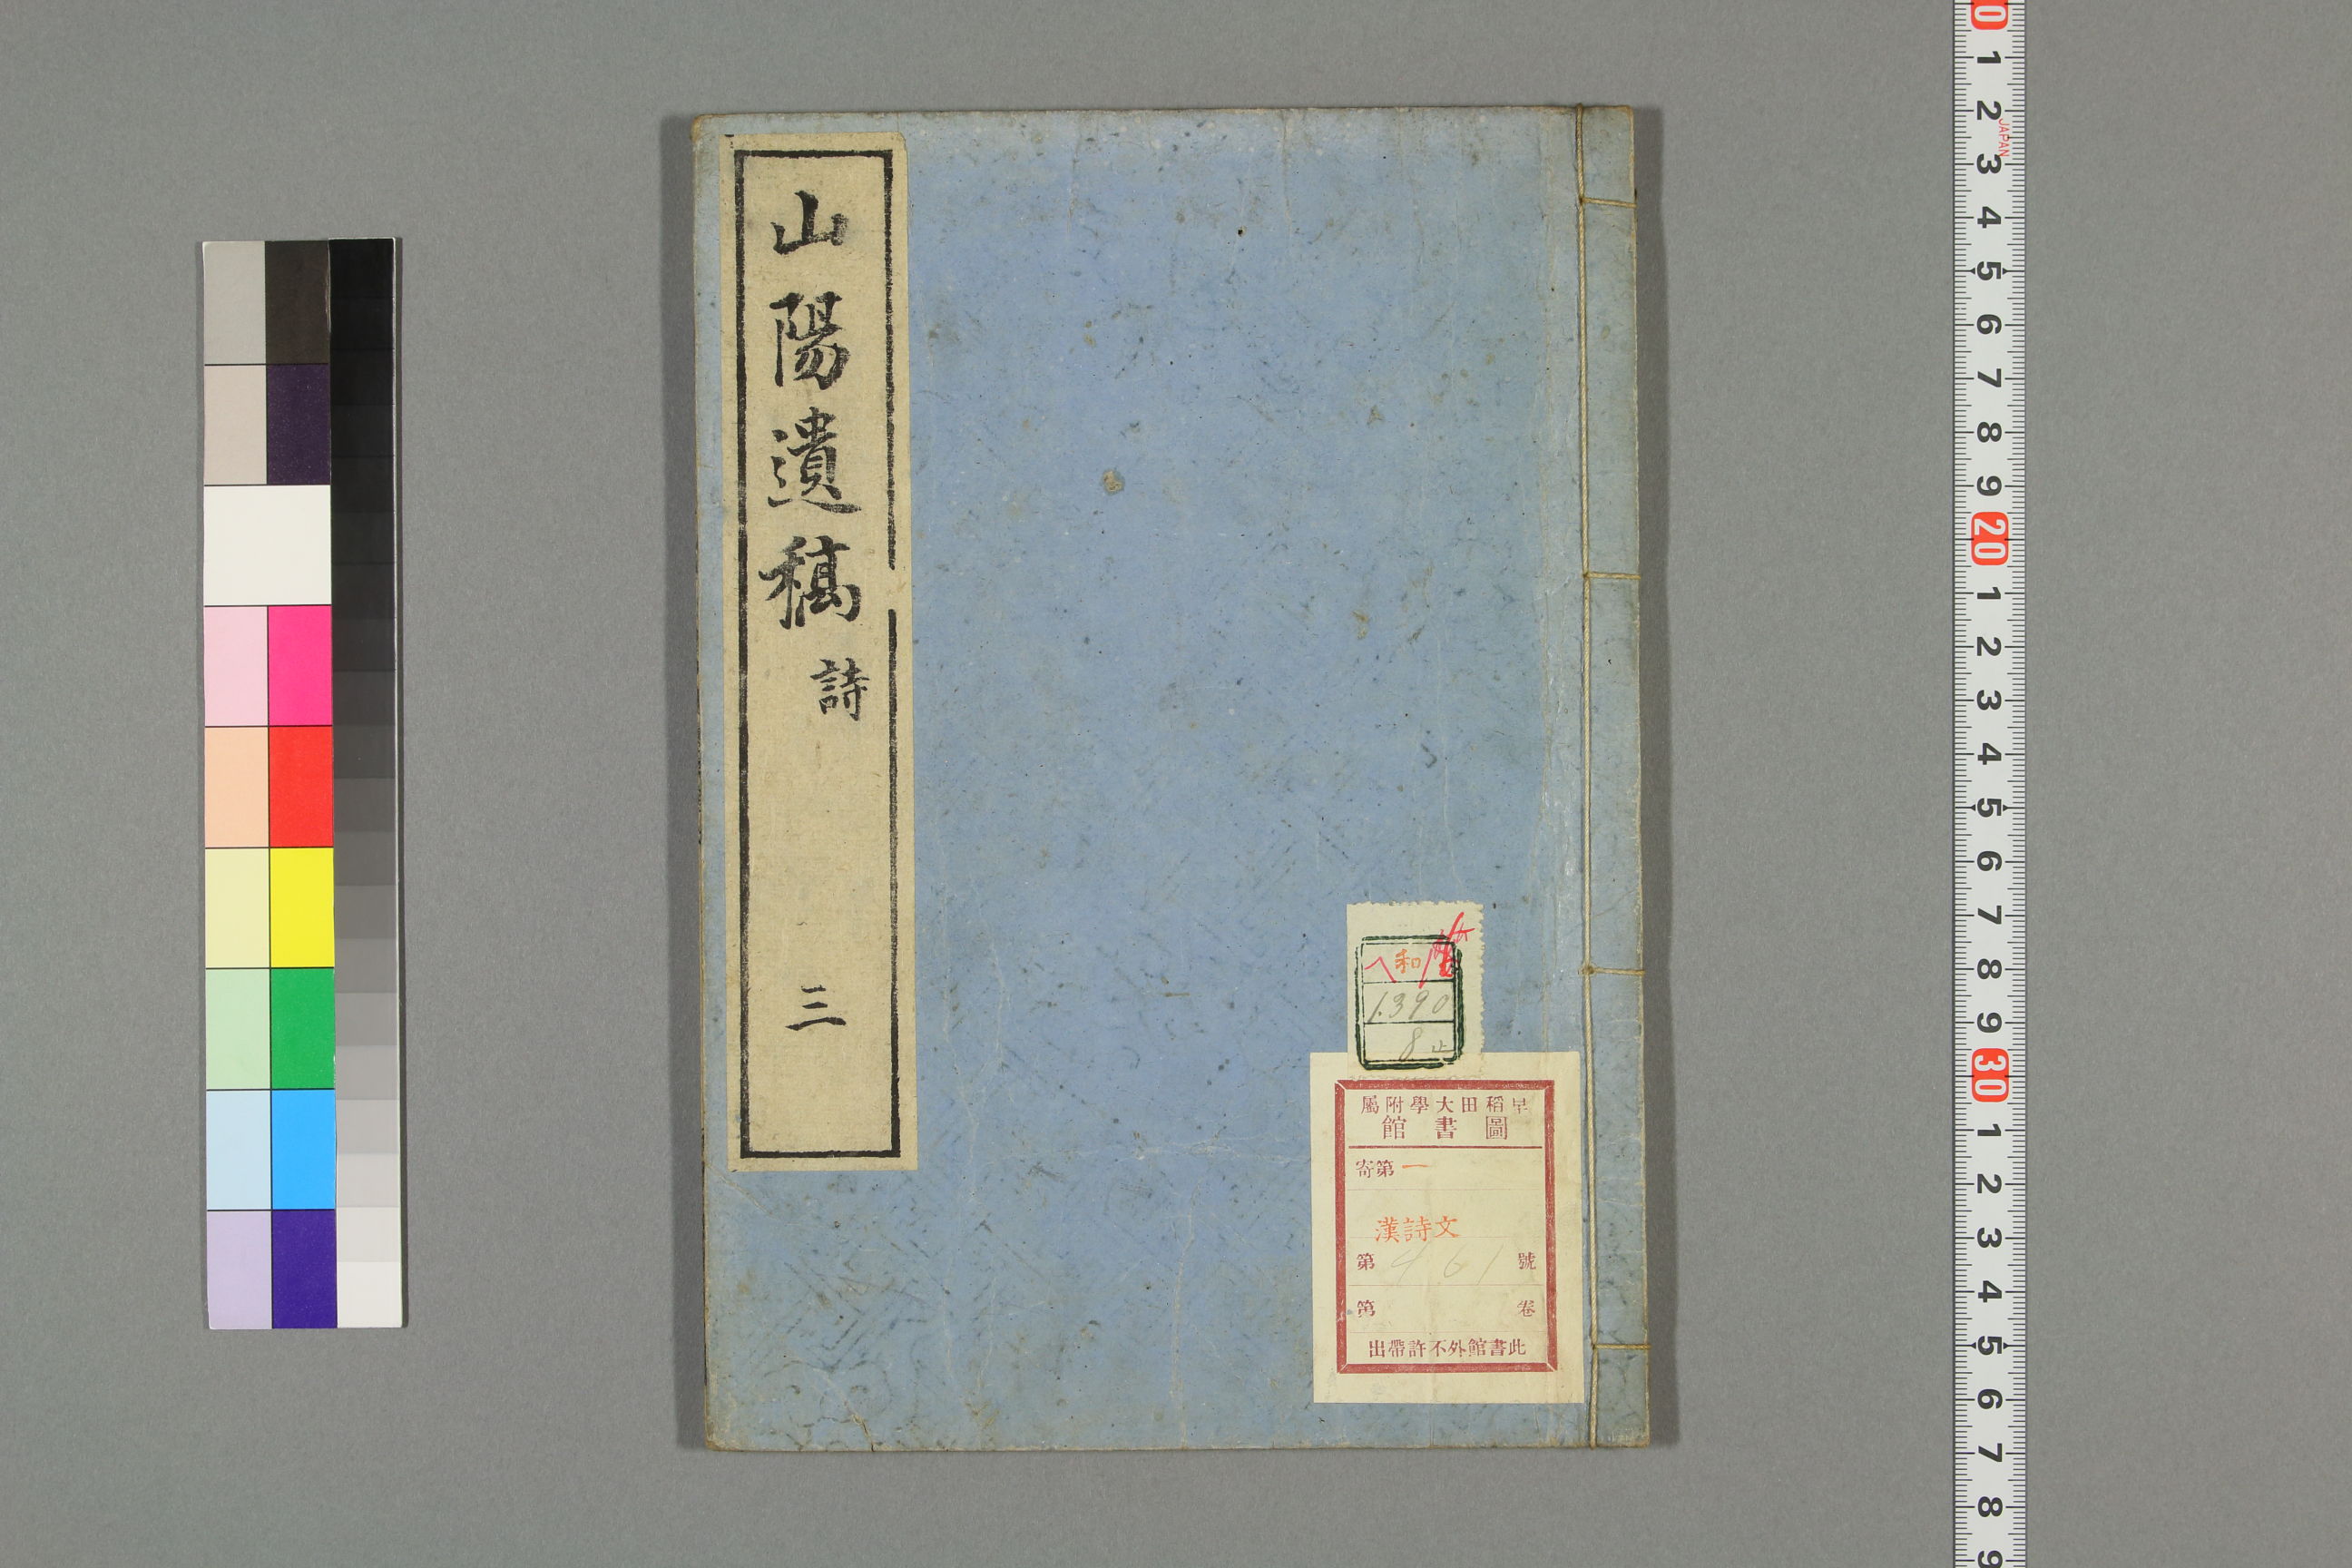 山陽遺稿 詩 三
へ 和
1390
8 止
早稻田大學附屬
圖書館
寄第一
漢詩文
第 461 號
第 卷
此書館外不許帶出
0 1 2 3 4 5 6 7 8 9 20 1 2 3 4 5 6 7 8 9 30 1 2 3 4 5 6 7 8 9
JAPAN